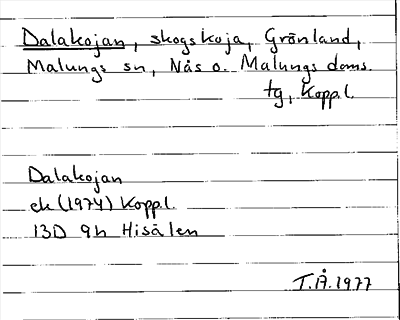 Dalakojan, skogskoja, Grönland,
Malungs sn, Nås o. Malungs doms.
tg, Koppl.
Dalakojan
ek (1974) Koppl.
13D 9h Hisälen
T.Å. 1977